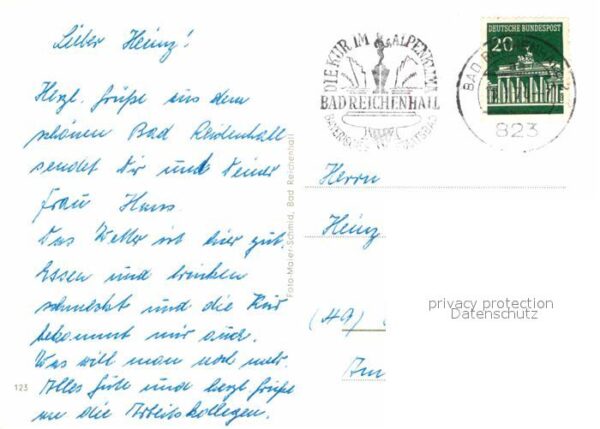 Lieber Heinz!
Herzl. Grüße aus dem
schönen Bad Reichenhall
sendet Dir und Deiner
Frau Hans.
Das Wetter ist hier gut.
Essen und trinken
schmeckt und die Kur
bekommt mir auch.
Was will man noch mehr.
Alles Gute und herzl. Grüße
an die Arbeitskollegen.
123
Foto-Maier-Schmid, Bad Reichenhall
DIE KUR IM ALPENKLIMA
BAD REICHENHALL
BAYERISCHES STAATSBAD
HILFT
DEUTSCHE BUNDESPOST
20
BAD REICHENHALL
823
Herrn
Heinz
privacy protection
Datenschutz
Am